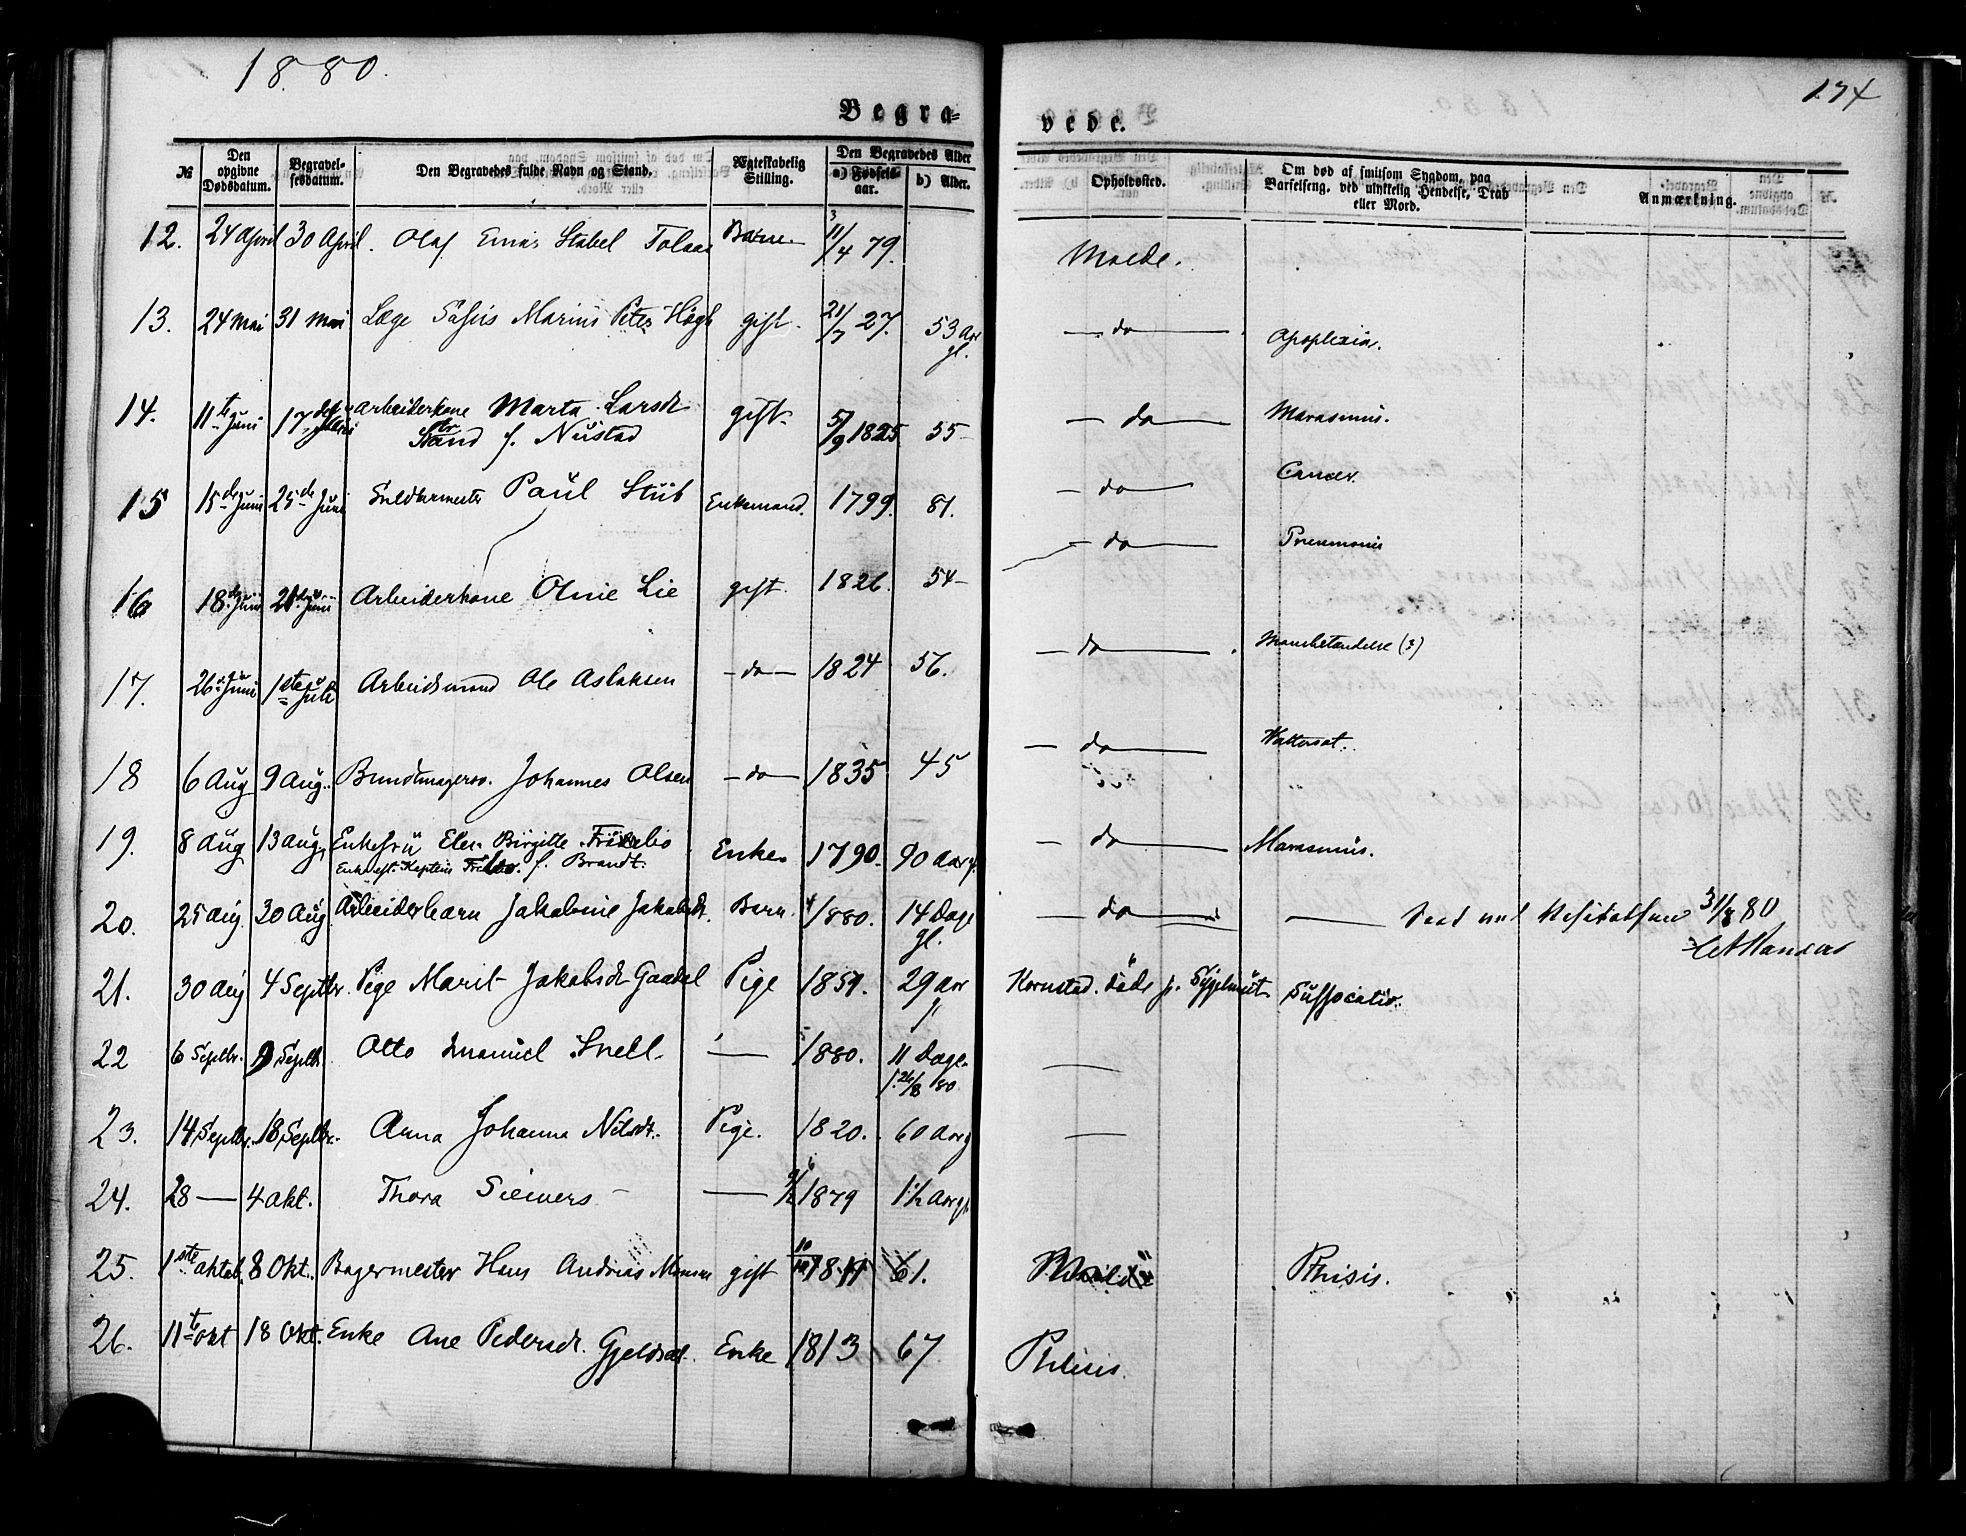 1880.
174
Begra-
vede.
№
Den opgivne Dødsdatum.
Begravelsesdatum.
Den Begravedes fulde Navn og Stand.
Ægteskabelig Stilling.
Den Begravedes Alder
a) Fødselsaar.
b) Alder.
Opholdssted.
Om død af smitsom Sygdom, paa Barselseng, ved ulykkelig Hendelse, Drab eller Mord.
Anmærkning.
12. 24 April 30 April. Olaf Einar Stabel Tolaas 11/4 79. Molde.
13. 24 Mai 31 Mai Læge Marius Peter Høgh gift. 21/7 27. 53 Aar gl. — do — Apoplexia.
14. 11te Juni 17de Juni Arbeiderkone Marta Larsdr gift 5/9 1825 55 — do — Marasmus.
f. Nustad
15 15de Juni 25de Juni Paul Stub Enkemand. 1799. 81. — do — Cancer.
16 18de Juni Juni Arbeiderkone Oline Lie gift. 1826. 54 — — do — Pneumonia
17. 26de Juni 1ste Juli Arbeidsmand Ole Aslaksen — do — 1824 56. — do —
18 6 Aug 9 Aug. Bundtmagersv. Johannes Olsen — do — 1835 45 — do — Vattersot.
19. 8 Aug 13 Aug. Enkefru Elen Birgitte Enke. 1790. 90 Aar g. — do — Marasmus.
Enke eft. Kaptein f. Brandt.
20. 25 Aug. 30 Aug. Arbeiderbarn Jakobine Jakobsdr. Barn. 1880. 14 Dage gl. — do — 31/8 80
21. 30 Aug 4 Septbr. Pige Marit Jakobsdr Pige 29 Aar Kornstad. Suffocatio.
22 6 Septbr. 9 Septbr. Otto Emanuel Snell. — 1880. 11 Dage. —
f. 26/8 80.
23. 14 Septbr. 18 Septbr. Anna Johanna Nilsdr. Pige. 1820. 60 Aar g —
24. 28 — 4 Okt. Thora Sievers — — 1879 1½ Aar g.
25. 1ste Oktob. 8 Okt. Bagermester Hans Andreas gift 61. Molde Phtisis.
26. 11te Okt 18 Okt. Enke Ane Pedersdr. Enke 1813 67